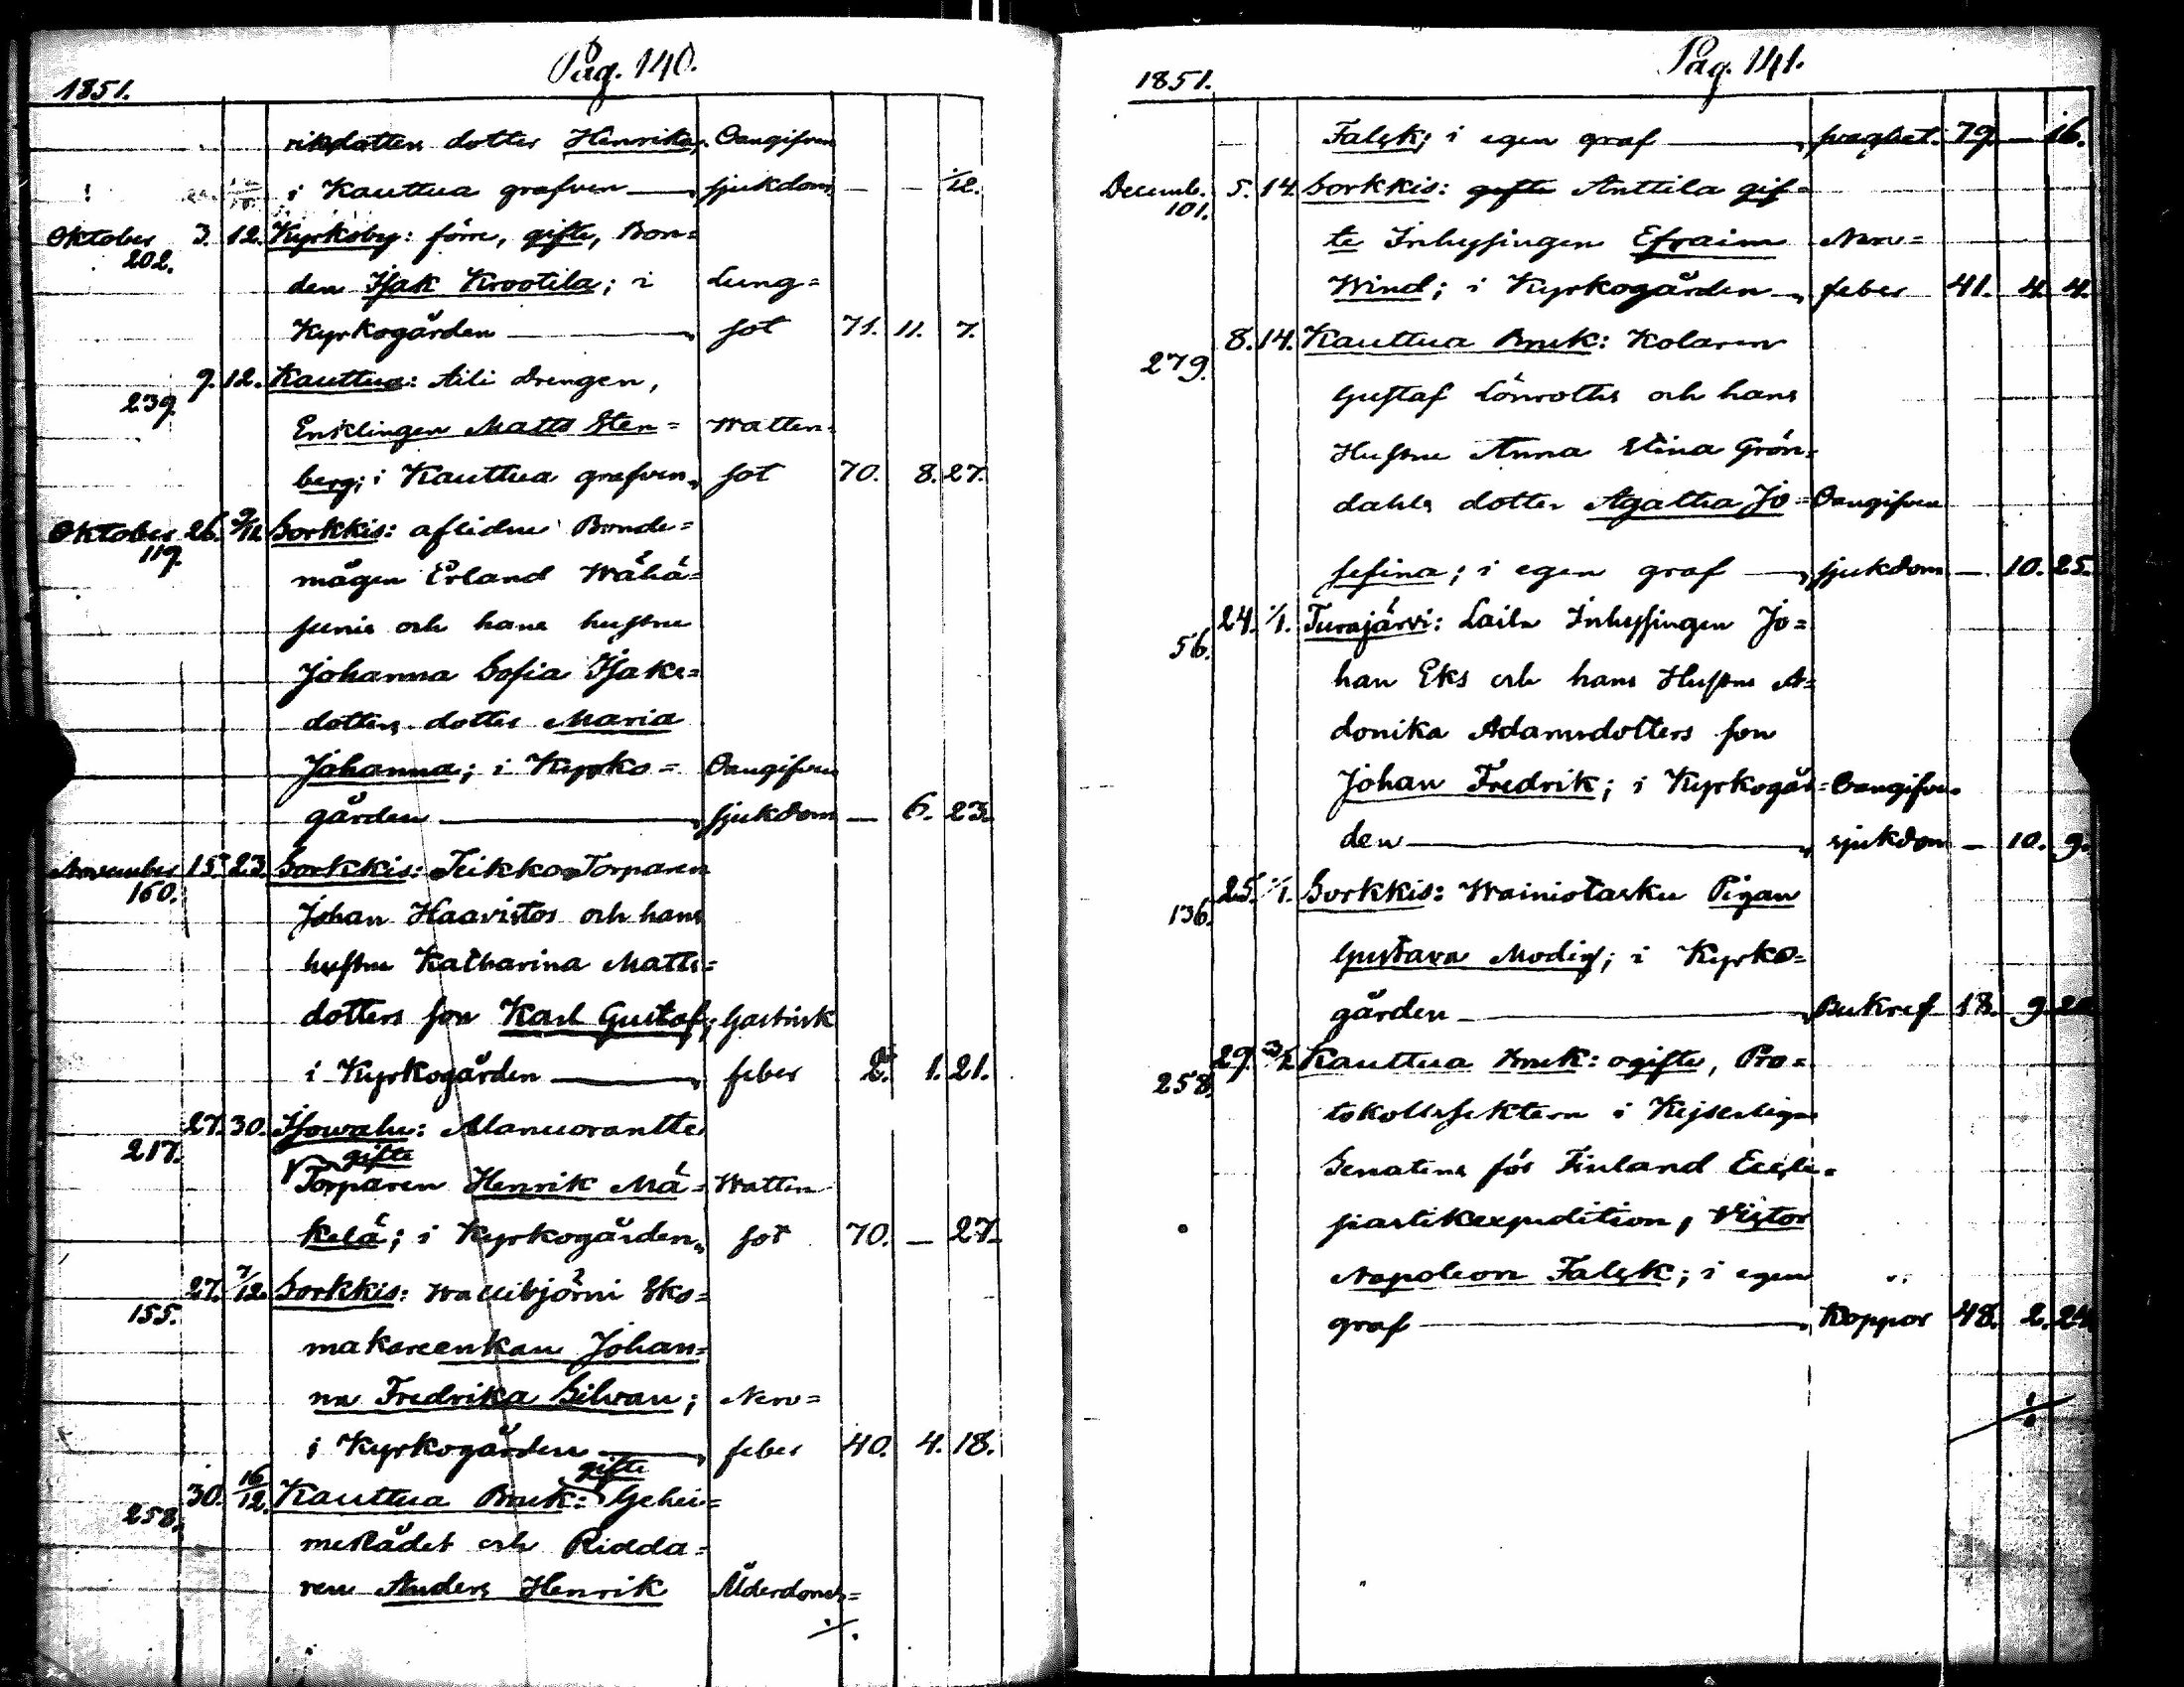 Pag. 140.
1851.
riksdotters dotter Henrika, Oangifven
i Kauttua grafven — sjukdom — — 12.
Oktober 3. 12. Kyrkoby: förre, gifte, Bon=
202.
den Isak Krootila; i Lung=
Kyrkogården — sot 71. 11. 7.
9. 12. Kauttua: Aili drengen,
239.
Enklingen Matts Sten= Watten=
berg; i Kauttua grafven, sot 70. 8. 27.
Oktober 26. 9/12 Sorkkis: aflidne Bonde=
119.
mågen Erland Wähä=
junis och hans hustru
Johanna Sofia Isaks=
dotters dotter Maria
Johanna; i Kyrko= Oangifven
gården — sjukdom — 6. 23.
November 15. 23. Sorkkis: Teikko Torparen
160.
Johan Haavistos och hans
hustru Katharina Matts=
dotters son Karl Gustaf; Gastrisk
i Kyrkogården — feber 2. 1. 21.
27. 30. Isowahe: Alanuorantte
217.
gifte
Torparen Henrik Mä= Watten
kelä; i Kyrkogården, sot 70. — 27.
27. 7/12. Sorkkis: Wallibjörni Sko=
155.
makareenkan Johan=
na Fredrika Silvan; Nerv=
i Kyrkogården — feber 40. 4. 18.
gifte
30. 16/12. Kauttua Bruk: Gehei=
258.
meRådet och Ridda=
ren Anders Henrik Ålderdoms=
./.
Pag. 141.
1851.
Falck; i egen graf — svaghet. 79. — 16.
Decemb. 5. 14. Sorkkis: gifte Anttila gif=
101.
te Inhysingen Efraim Nerv=
Wind; i Kyrkogården — feber 41. 4. 4.
8. 14. Kauttua Bruk: Kolaren
279.
Gustaf Lönroths och hans
Hustru Anna Stina Grön=
dahls dotter Agatha Jo= Oangifven
sefina; i egen graf — sjukdom — 10. 25.
24. 1/1. Turajärvi: Laila Inhysingen Jo=
56.
han Eks och hans Hustru A=
donika Adamsdotters son
Johan Fredrik; i Kyrkogår= Oangifven
den — sjukdom — 10. 9.
25. 1/1. Sorkkis: Wainiotasku Pigan
136.
Gustava Modig; i Kyrko=
gården — Bukref 18. 9.
29. Kauttua Bruk: ogifte, Pro=
258.
tokollssektern i Kejserliga
Senatens för Finland Eccle=
siastikexpedition, Victor
Napoleon Falck; i egen
graf — Koppor 48. 2. 24.
./.